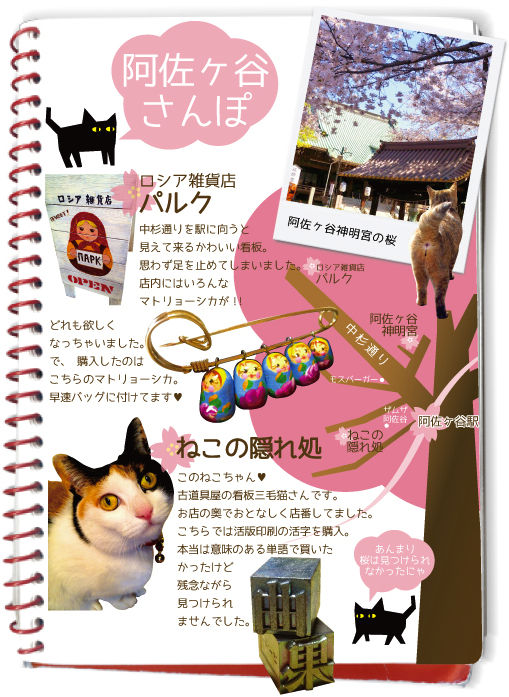 阿佐ヶ谷
さんぽ
阿佐ヶ谷神明宮の桜
ロシア雑貨店
パルク
中杉通りを駅に向うと
見えて来るかわいい看板。
思わず足を止めてしまいました。
店内にはいろんな
マトリョーシカが !!
ロシア 雑貨店
ПАРК
OPEN
どれも欲しく
なっちゃいました。
で、購入したのは
こちらのマトリョーシカ。
早速バッグに付けてます♥
ロシア雑貨店
パルク
阿佐ヶ谷
神明宮
中杉通り
モスバーガー
ザムザ
阿佐谷
阿佐ヶ谷駅
ねこの
隠れ処
ねこの隠れ処
このねこちゃん♥
古道具屋の看板三毛猫さんです。
お店の奥でおとなしく店番してました。
こちらでは活版印刷の活字を購入。
本当は意味のある単語で買いた
かったけど
残念ながら
見つけられ
ませんでした。
あんまり
桜は見つけられ
なかったにゃ
果